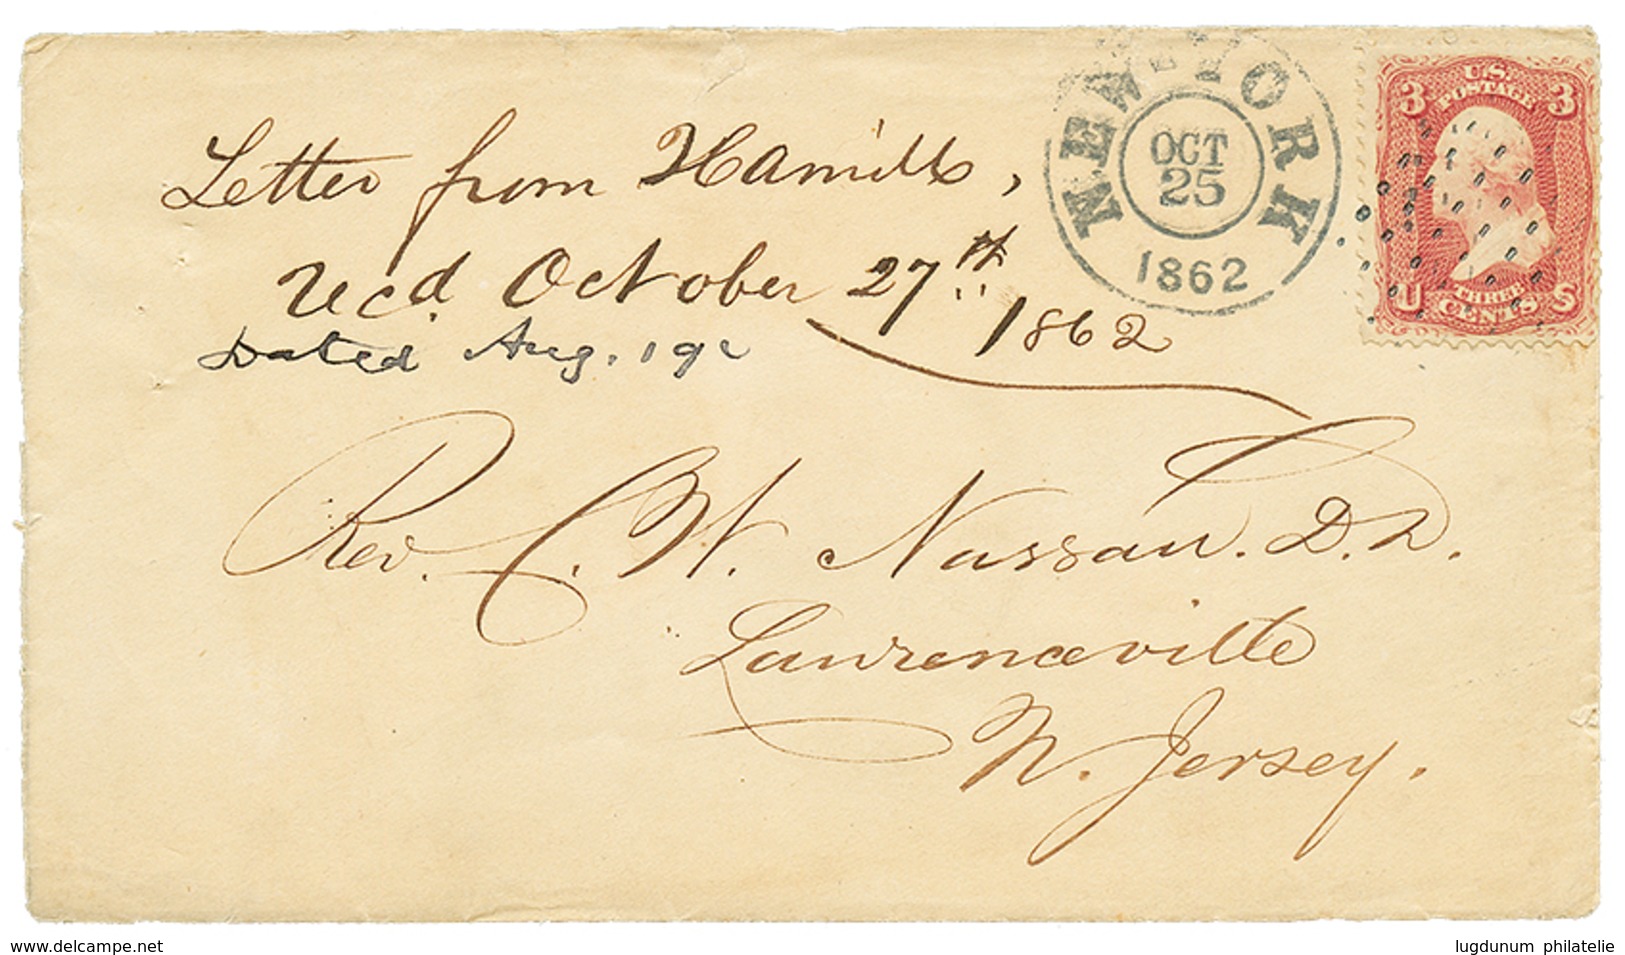 Letter from Hamill,
Recd. October 27th 1862
Dated Aug. 19
NEW-YORK
OCT
25
1862
3 U.S. 3
POSTAGE
THREE
U CENTS S
Rev. C. W. Nassau. D.D.
Lawrenceville
N. Jersey.
www.delcampe.net
lugdunum philatelie